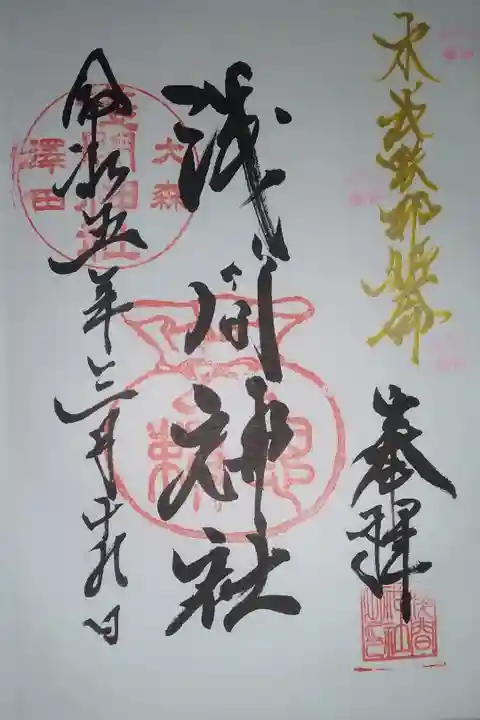 木花咲耶姫命
奉拝
浅間神社
令和五年三月十九日
大森
澤田